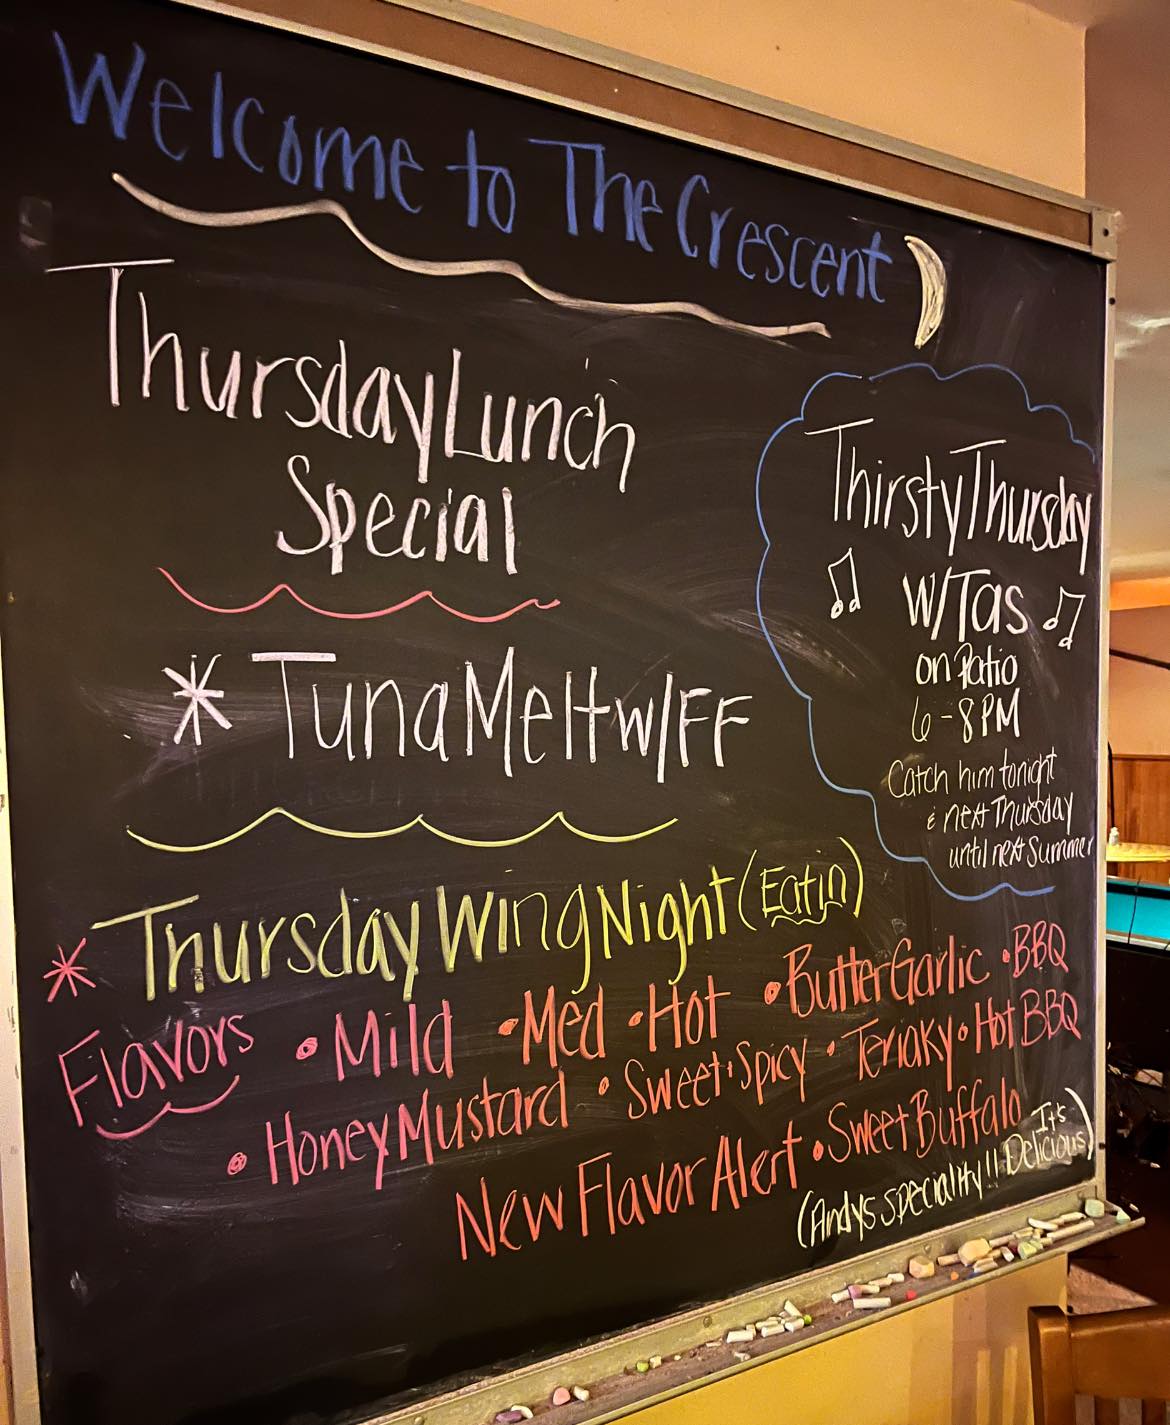 Welcome to The Crescent
Thursday Lunch
Special
* Tuna Melt w/FF
Thirsty Thursday
w/Tas
on Patio
6-8PM
Catch him tonight
& next Thursday
until next Summer
* Thursday Wing Night (Eatin)
Flavors • Mild • Med • Hot • Butter Garlic • BBQ
• Honey Mustard • Sweet + Spicy • Teriaky • Hot BBQ
New Flavor Alert • Sweet Buffalo
(Andys speciality!! It's Delicious)